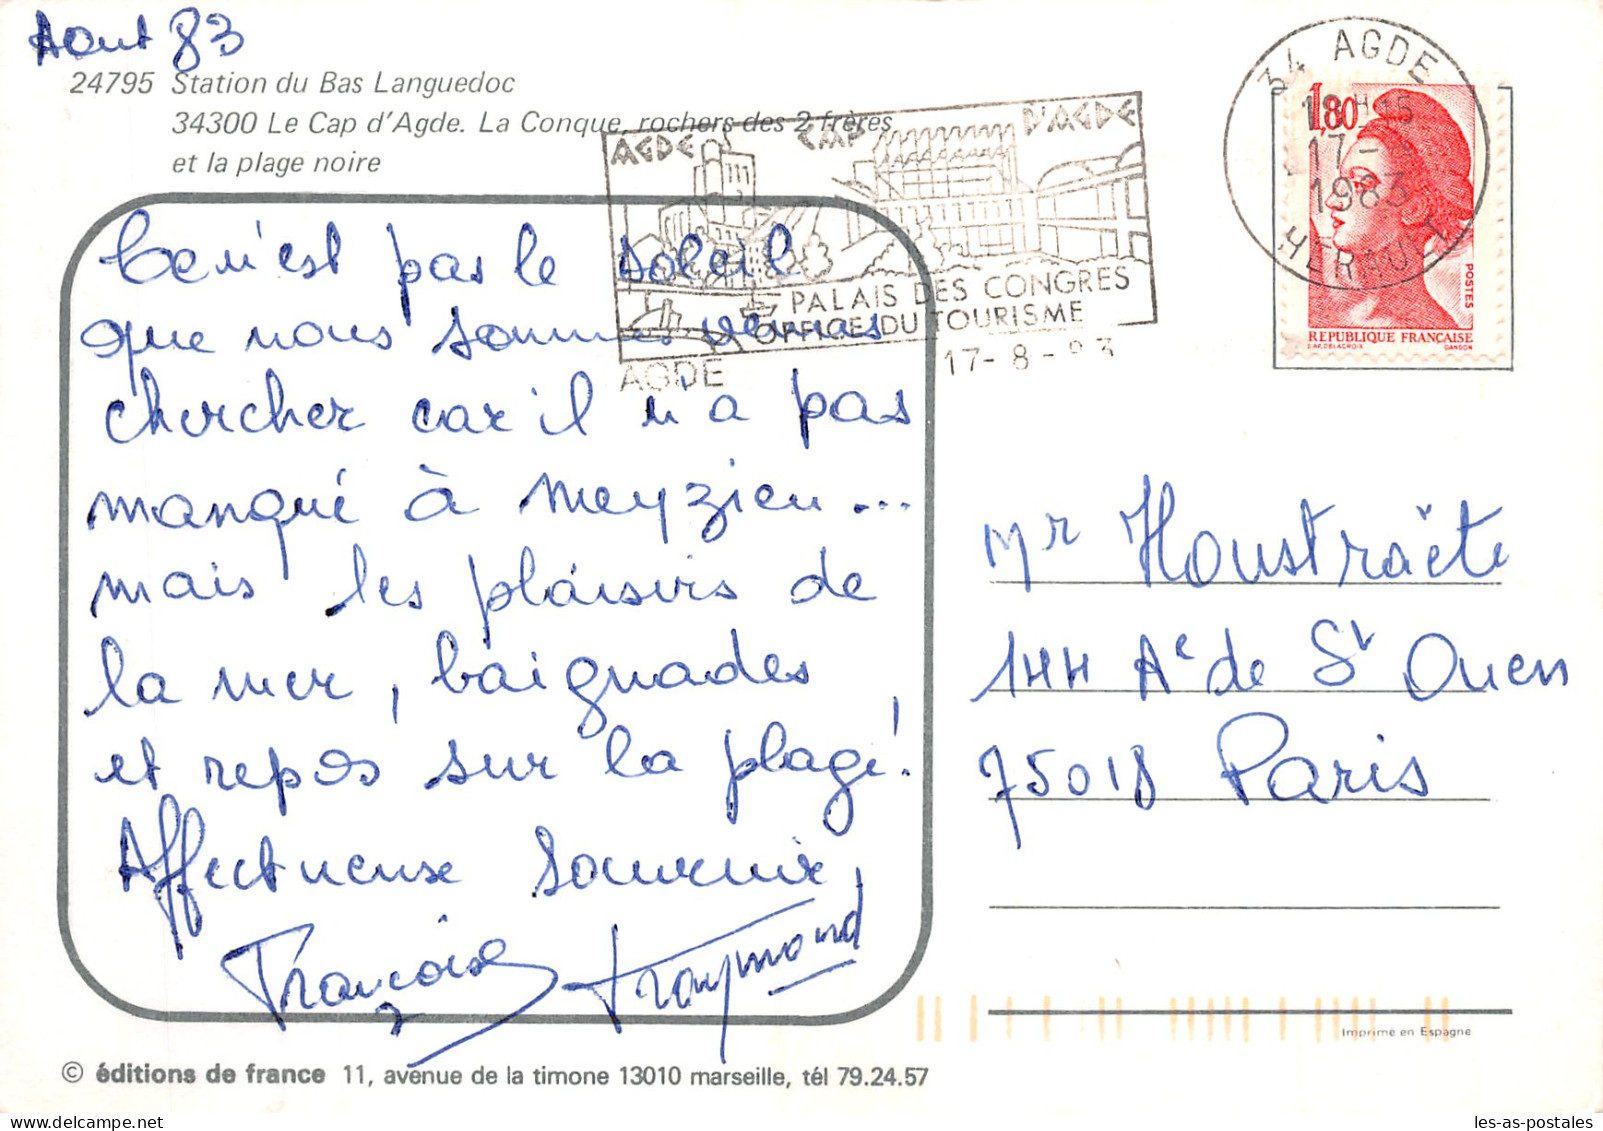 Aout 83
24795 Station du Bas Languedoc
34300 Le Cap d'Agde. La Conque, rochers des 2 frères
et la plage noire
AGDE CAP D'AGDE
PALAIS DES CONGRES
OFFICE DU TOURISME
AGDE 17-8-83
34 AGDE
18H15
17-8
1983
HERAULT
1,80
POSTES
REPUBLIQUE FRANÇAISE
D'AP. DELACROIX GANDON
Ce n'est pas le soleil
que nous sommes venus
chercher car il n'a pas
manqué à Meyzieu...
mais les plaisirs de
la mer, baignades
et repos sur la plage!
Affectueux souvenir,
Françoise Raymond
Mr Houstraëte
144 Ae de St Ouen
75018 Paris
Imprimé en Espagne
© éditions de france 11, avenue de la timone 13010 marseille, tél 79.24.57
les-as-postales